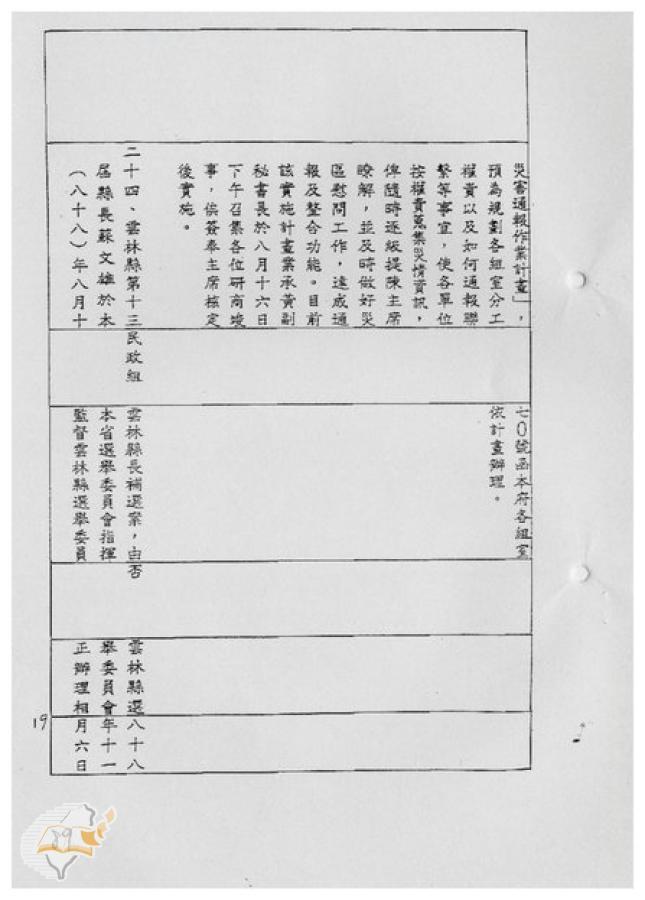 災害通報作業計畫」，
預為規劃各組室分工
權責以及如何通報聯
繫等事宜，使各單位
按權責蒐集災情資訊，
俾隨時逐級提陳主席
瞭解，並及時做好災
區慰問工作，達成通
報及整合功能。目前
該實施計畫業承黃副
秘書長於八月十六日
下午召集各位研商竣
事，俟簽奉主席核定
後實施。
七0號函本府各組室
依計畫辦理。
二十四、雲林縣第十三
屆縣長蘇文雄於本
（八十八）年八月十
民政組
雲林縣長補選案，由
本省選舉委員會指揮
監督雲林縣選舉委員
否
雲林縣選
舉委員會
正辦理相
八十八
年十一
月六日
19
89